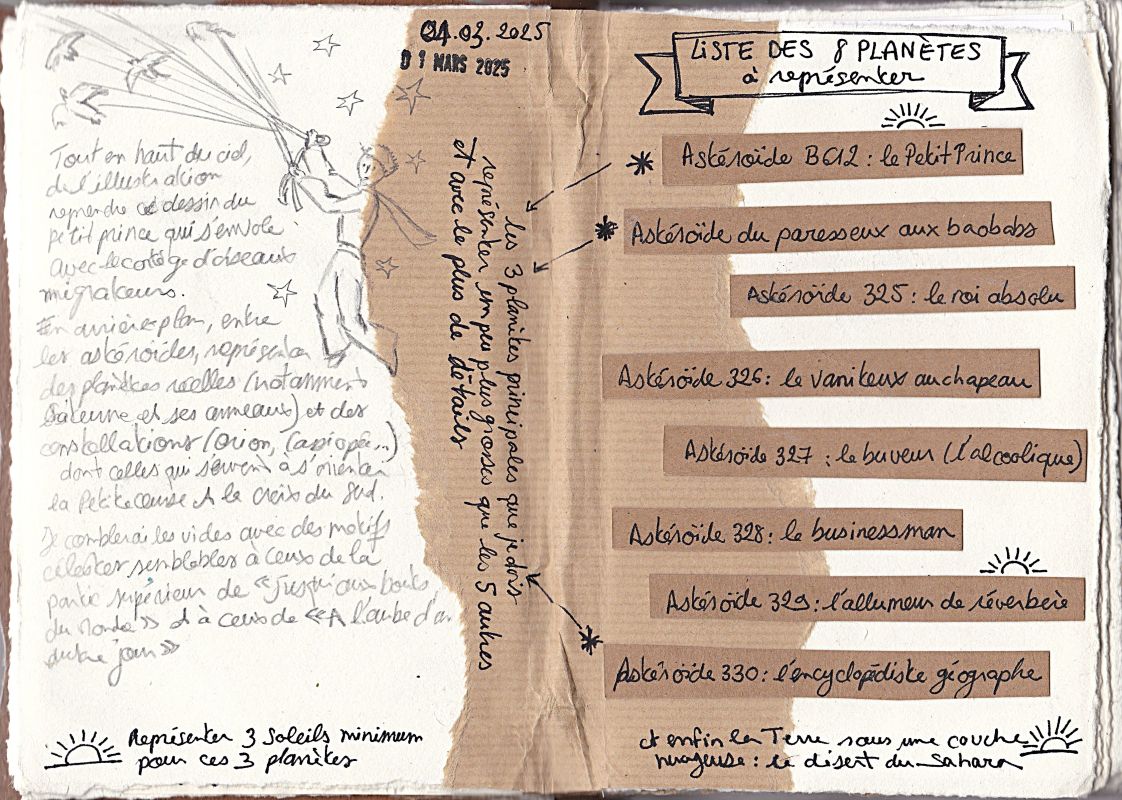 04.03.2025
01 MARS 2025
Tout en haut du ciel,
de l'illustration
reprendre ce dessin du
petit prince qui s'envole
avec le cortège d'oiseaux
migrateurs.
En arrière-plan, entre
les astéroïdes, représenter
des planètes réelles (notamment
Saturne et ses anneaux) et des
constellations (Orion, Cassiopée...)
dont celles qui servent à s'orienter
la Petite ourse et la croix du Sud.
Je comblerai les vides avec des motifs
célestes semblables à ceux de la
partie supérieure de « Jusqu'aux bouts
du monde » et à ceux de « A l'aube d'un
autre jour »
Représenter 3 Soleils minimum
pour ces 3 planètes
les 3 planètes principales que je dois
représenter un peu plus grosses que les 5 autres
et avec le plus de détails
LISTE DES 8 PLANÈTES
à représenter
Astéroïde B612 : le Petit Prince
Astéroïde du paresseux aux baobabs
Astéroïde 325 : le roi absolu
Astéroïde 326 : le vaniteux au chapeau
Astéroïde 327 : le buveur (l'alcoolique)
Astéroïde 328 : le businessman
Astéroïde 329 : l'allumeur de réverbère
Astéroïde 330 : l'encyclopédiste géographe
et enfin la Terre sous une couche
nuageuse : le désert du Sahara